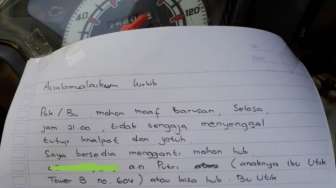 120
160
Assalamualaikum Wr.Wb
Pak / Bu mohon maaf barusan, Selasa,
jam 21.00, tidak sengaja menyenggol
tutup malpat dan jatuh
Saya bersedia mengganti. mohon hub
a.n Putri (anaknya Ibu Utik
Tower B no. 604) atau bisa hub. Bu Utik